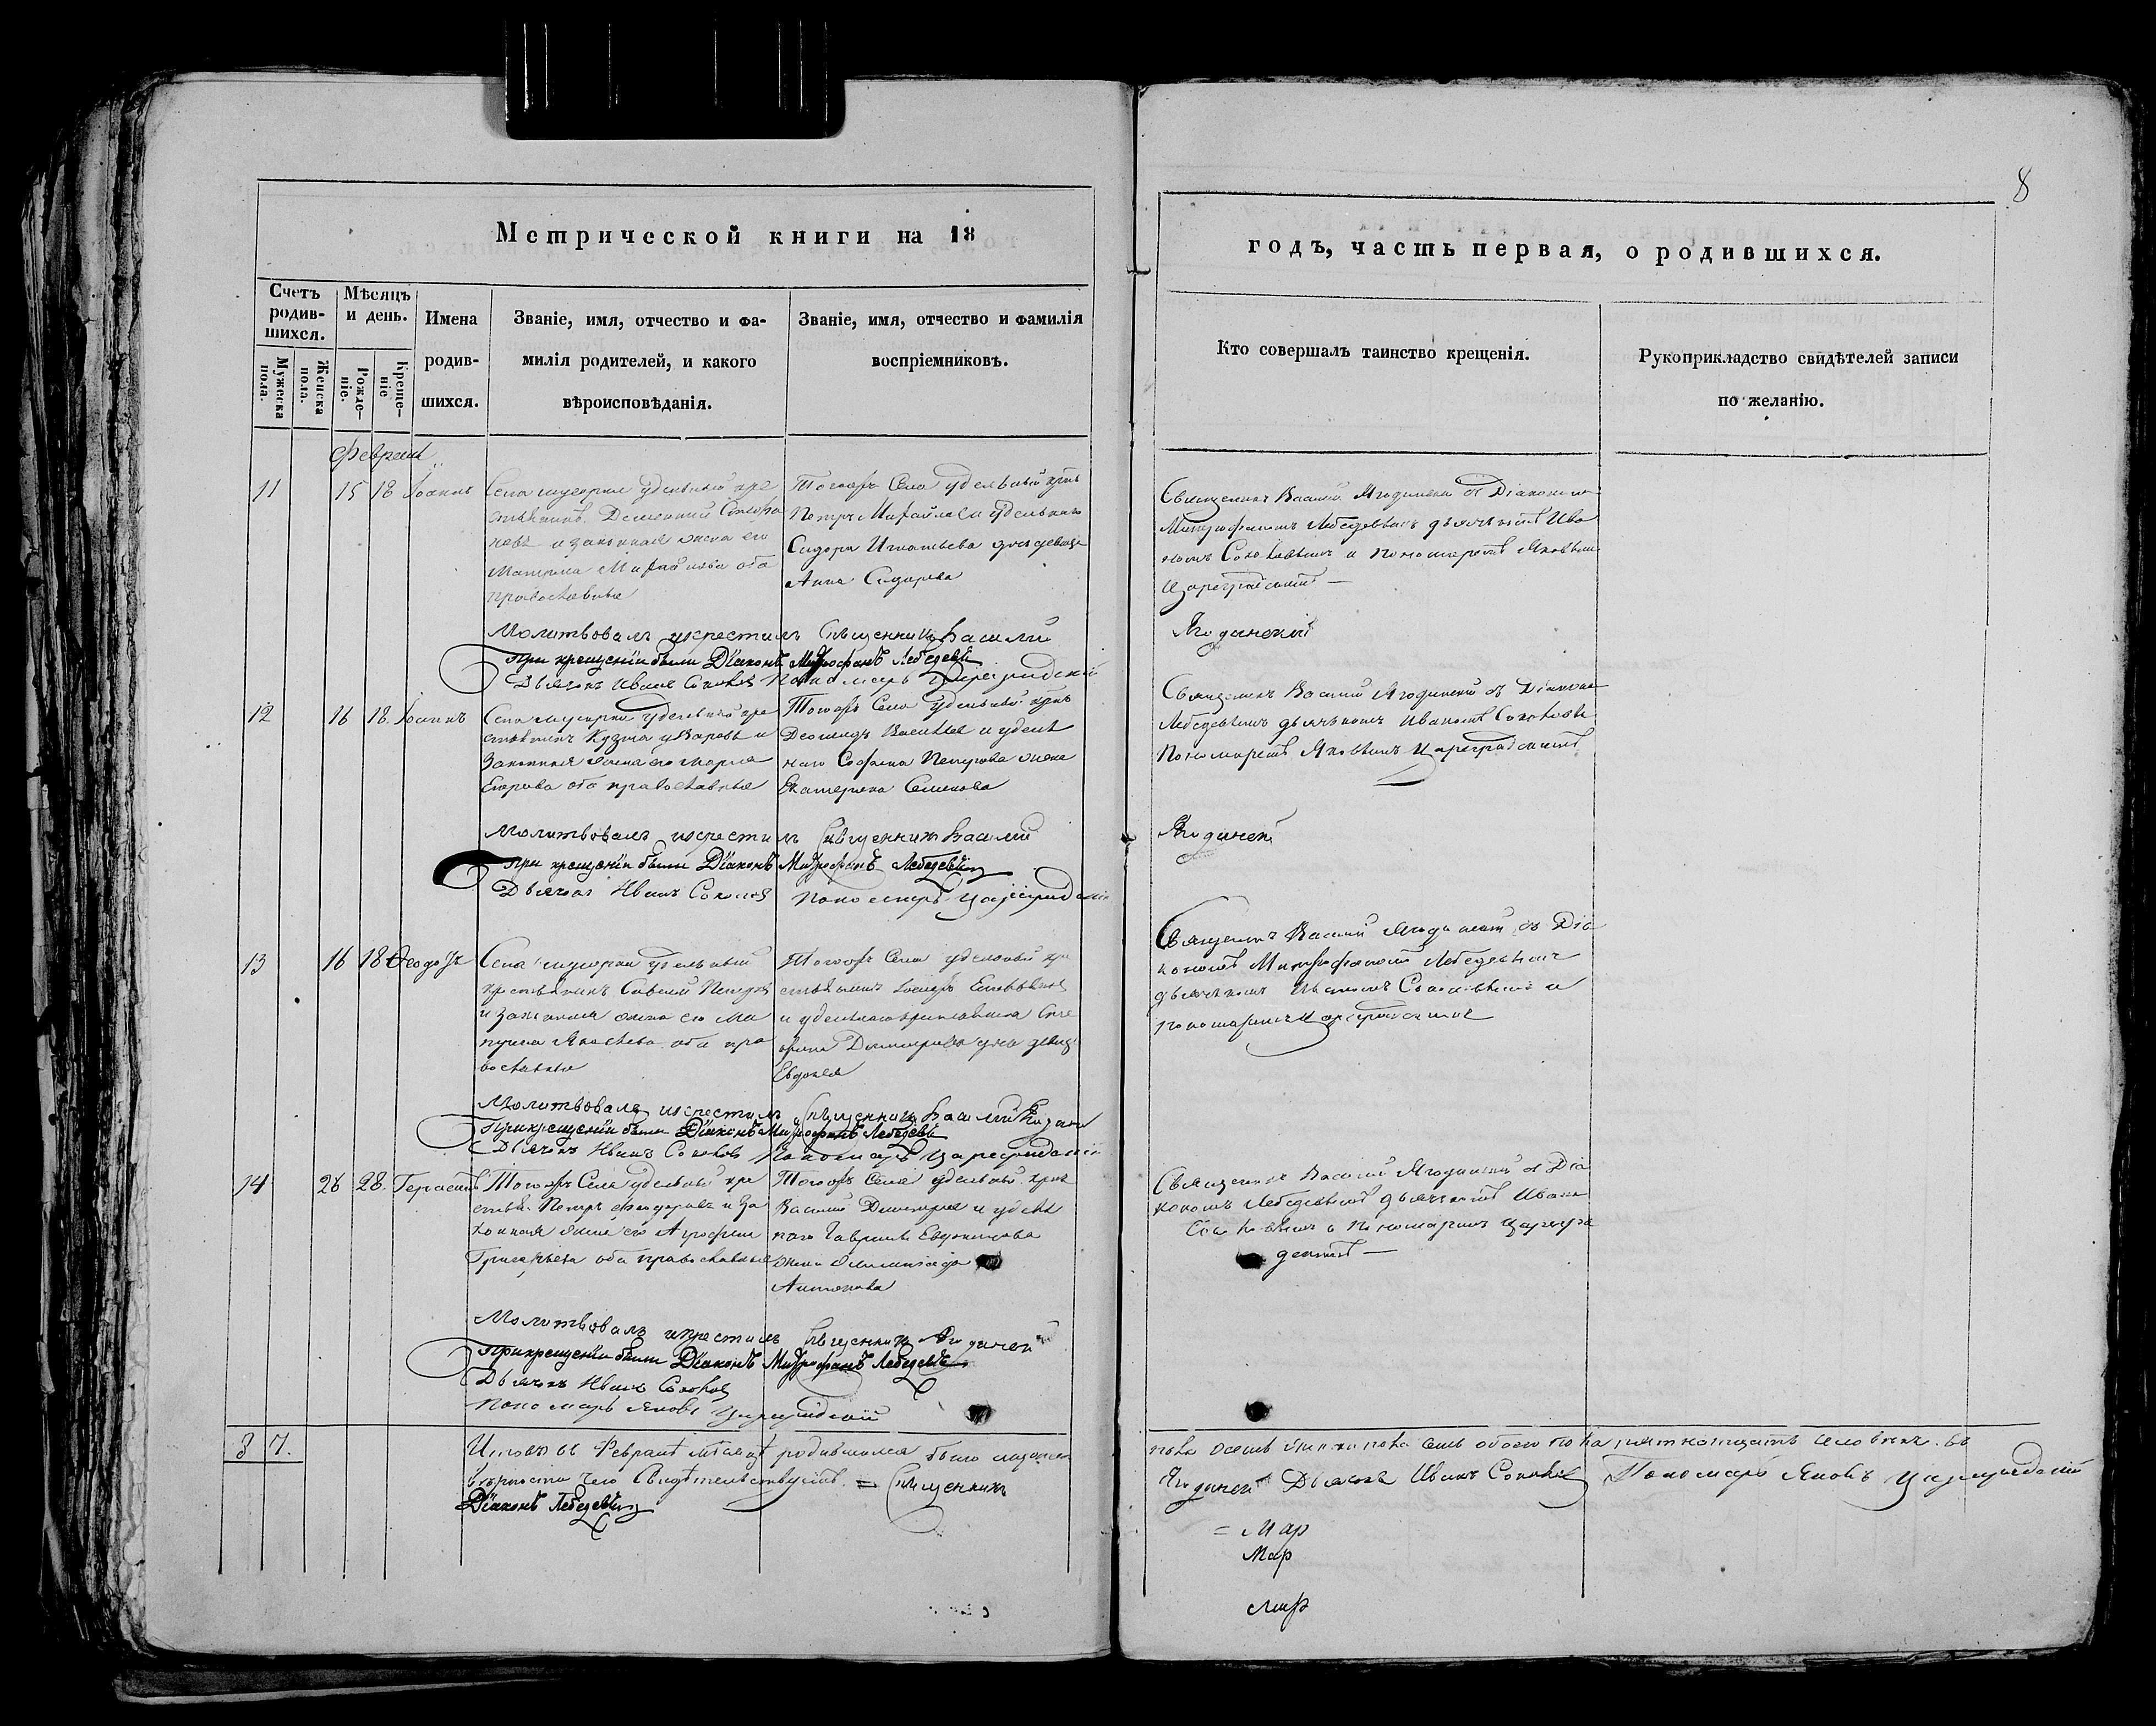 8
Метрической книги на 18
годъ, часть первая, о родившихся.
Счетъ родив-шихся.
Мужеска пола.
Женска пола.
Мѣсяцъ и день.
Рожде-ніе.
Креще-ніе
Имена родив-шихся.
Званіе, имя, отчество и фа-
милія родителей, и какого
вѣроисповѣданія.
Званіе, имя, отчество и фамилія
воспріемниковъ.
Кто совершалъ таинство крещенія.
Рукоприкладство свидѣтелей записи
по желанію.
Февраль
11 15 18 Іоаннъ
Села удельный кре
стьянинъ
новъ и законная жена его
Матрона Михайлова оба
православные
Тогожъ Села удельный
Петръ Михайловъ и удельнаго
Сидора Игнатьева дочь девица
Анна Сидорова
Священникъ Василій Ягодинскій съ Діакономъ
Митрофаномъ Лебедевымъ дьячкомъ Ива
номъ Соколовымъ и пономаремъ Яковомъ
Цареградскимъ
Молитвовалъ и крестилъ Священникъ Василій Ягодинскій
При крещеніи были Діаконъ Митрофанъ Лебедевъ
Дьячекъ Иванъ Соколовъ Пономарь Цареградскій
12 16 18 Іоаннъ
Села удельный кре
стьянинъ Кузма Уваровъ и
Законная жена его Марѳа
Егорова оба православные
Тогожъ Села удельный
Васильевъ и удель
наго Петрова жена
Екатерина Семенова
Священникъ Василій Ягодинскій съ Діакономъ
Лебедевымъ дьячкомъ Иваномъ Соколовымъ
Пономаремъ Яковомъ Цареградскимъ
Молитвовалъ и крестилъ Священникъ Василій Ягодинскій
При крещеніи были Діаконъ Митрофанъ Лебедевъ
Дьячекъ Иванъ Соколовъ Пономарь Цареградскій
13 16 18 Ѳеодоръ
Села удельный
крестьянинъ Савелій Петровъ
и законная жена его Ма
трона Яковлева оба пра
вославные
Тогожъ Села удельный кре
стьянинъ
и удельнаго крестьянина
Димитріева дочь девица
Евдокія
Священникъ Василій Ягодинскій съ Діа
кономъ Митрофаномъ Лебедевымъ
дьячкомъ Иваномъ Соколовымъ и
пономаремъ Цареградскимъ
Молитвовалъ и крестилъ Священникъ Василій Ягодинскій
При крещеніи были Діаконъ Митрофанъ Лебедевъ
Дьячекъ Иванъ Соколовъ Пономарь Цареградскій
14 26 28 Герасимъ
Тогожъ Села удельный кре
стьян. Петръ Ѳеодоровъ и За
конная жена его Агрофена
Григорьева оба православные
Тогожъ Села удельный
Василій Димитріевъ и удель
наго Гавріила Евдокимова
жена
Антонова
Священникъ Василій Ягодинскій съ Діа
кономъ Лебедевымъ дьячкомъ Иваномъ
Соколовымъ и Пономаремъ Цареград
Молитвовалъ и крестилъ Священникъ Ягодинскій
При крещеніи были Діаконъ Митрофанъ Лебедевъ
Дьячекъ Иванъ Соколовъ
Пономарь Яковъ Цареградскій
8 7.
Итого въ Февралѣ мѣсяцѣ родившихся было мужеска пола осемь женска пола семь обоего пола пятнатцать человѣкъ. въ
вѣрности чего Свидѣтельствуемъ = Священникъ Ягодинскій Дьячекъ Иванъ Соколовъ Пономарь Яковъ Цареградскій
Діаконъ Лебедевъ
= Мар
Мар
Мар